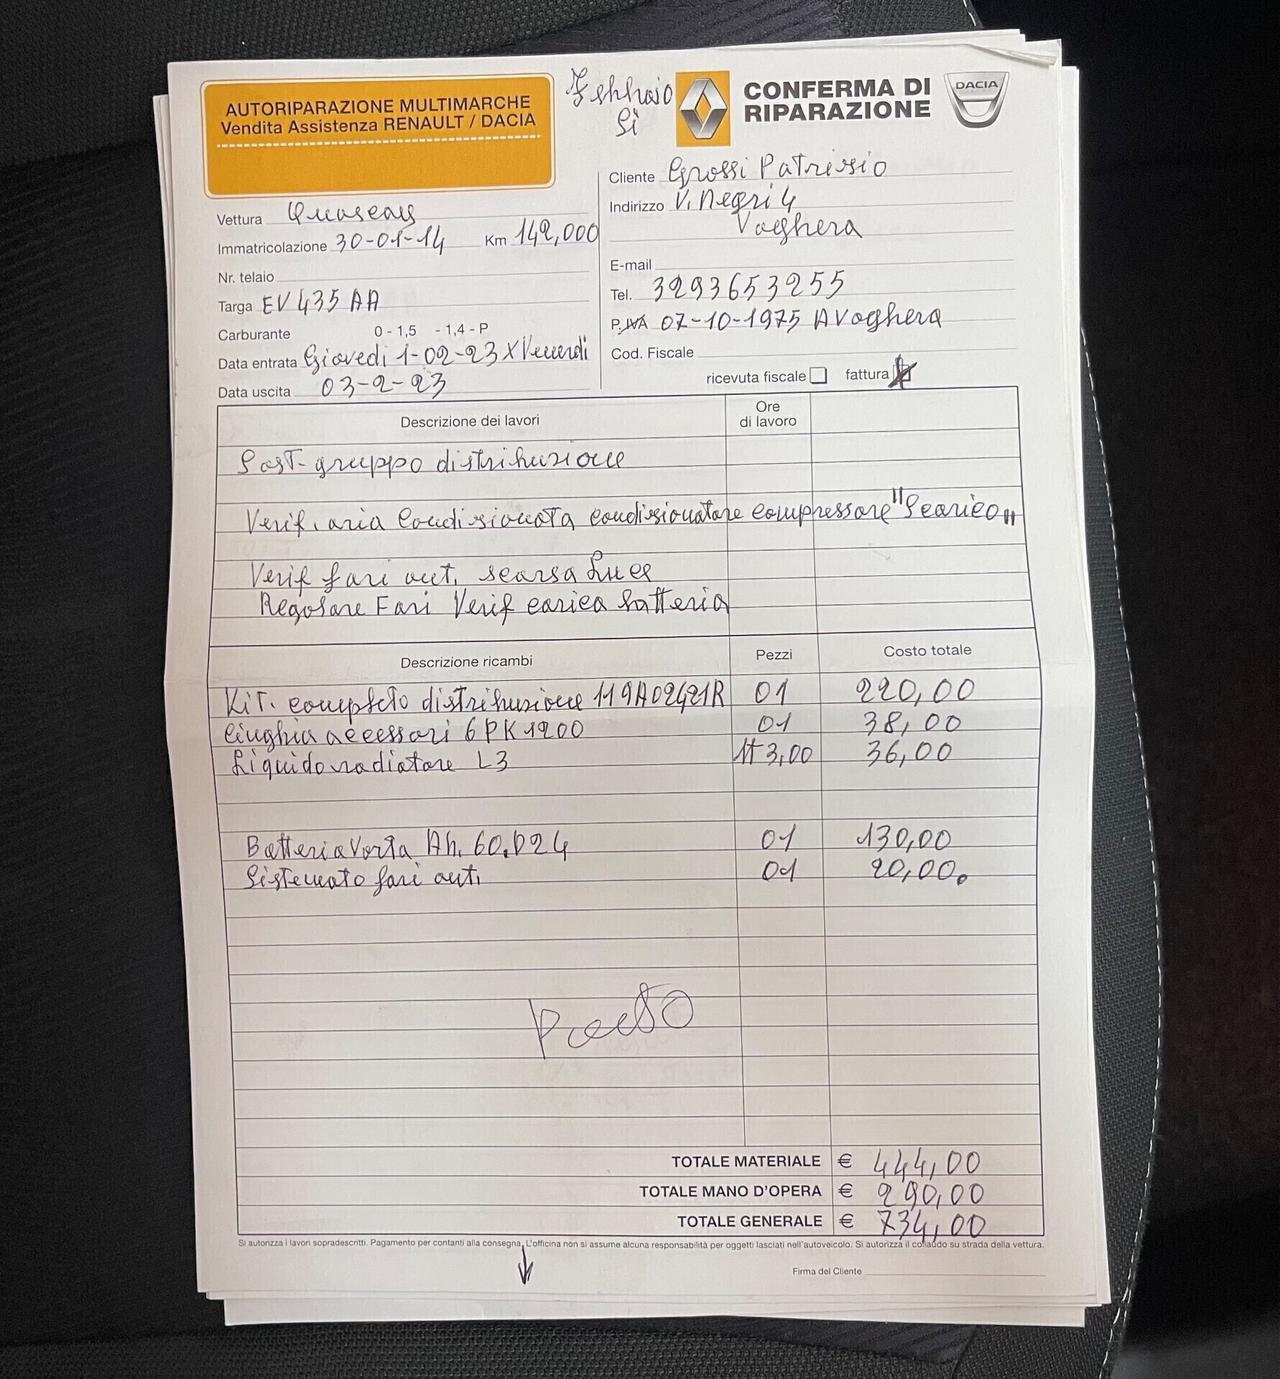 AUTORIPARAZIONE MULTIMARCHE
Vendita Assistenza RENAULT / DACIA
Febbraio
Si
CONFERMA DI
RIPARAZIONE
DACIA
Cliente Grossi Patrizio
Indirizzo V. Negri 4
Voghera
E-mail
Tel. 3293653255
P. IVA 07-10-1975 A Voghera
Cod. Fiscale
ricevuta fiscale fattura
Vettura
Immatricolazione 30-01-14 Km 142,000
Nr. telaio
Targa EV 435 AA
Carburante 0 - 1,5 - 1,4 - P
Data entrata Giovedi 1-02-23 X Venerdi
Data uscita 03-2-23
Descrizione dei lavori
Ore
di lavoro
Sost. gruppo distribuzione
Verif. aria condizionata condizionatore compressore "Scarico"
Verif fari ant. scarsa luce
Regolare Fari Verif carica batteria
Descrizione ricambi Pezzi Costo totale
Kit. completo distribuzione 119A02421R 01 220,00
Cinghia accessori 6PK1200 01 38,00
Liquido radiatore L3 3,00 36,00
Batteria Varta Ah. 60. D24 01 130,00
Sistemato fari ant. 01 20,00.
TOTALE MATERIALE € 444,00
TOTALE MANO D'OPERA € 290,00
TOTALE GENERALE € 734,00
Si autorizza i lavori sopradescritti. Pagamento per contanti alla consegna. L'officina non si assume alcuna responsabilità per oggetti lasciati nell'autoveicolo. Si autorizza il collaudo su strada della vettura.
Firma del Cliente